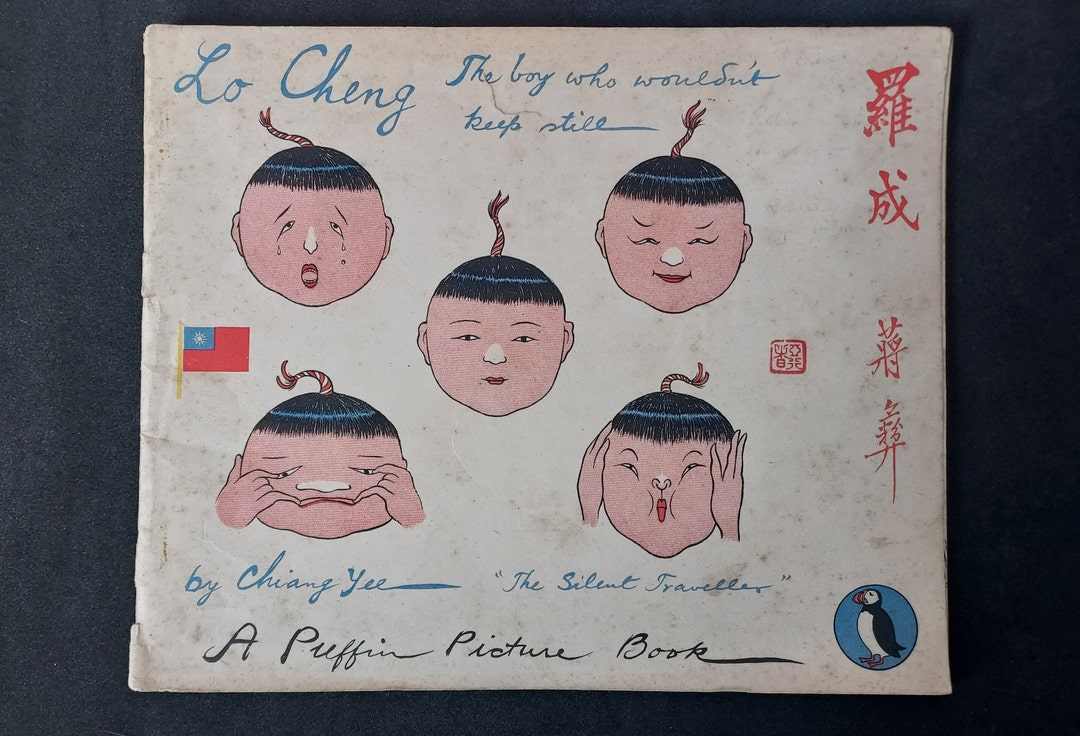 Lo Cheng
The boy who wouldn't
keep still
羅成
蔣彝
by Chiang Yee
"The Silent Traveller"
A Puffin Picture Book